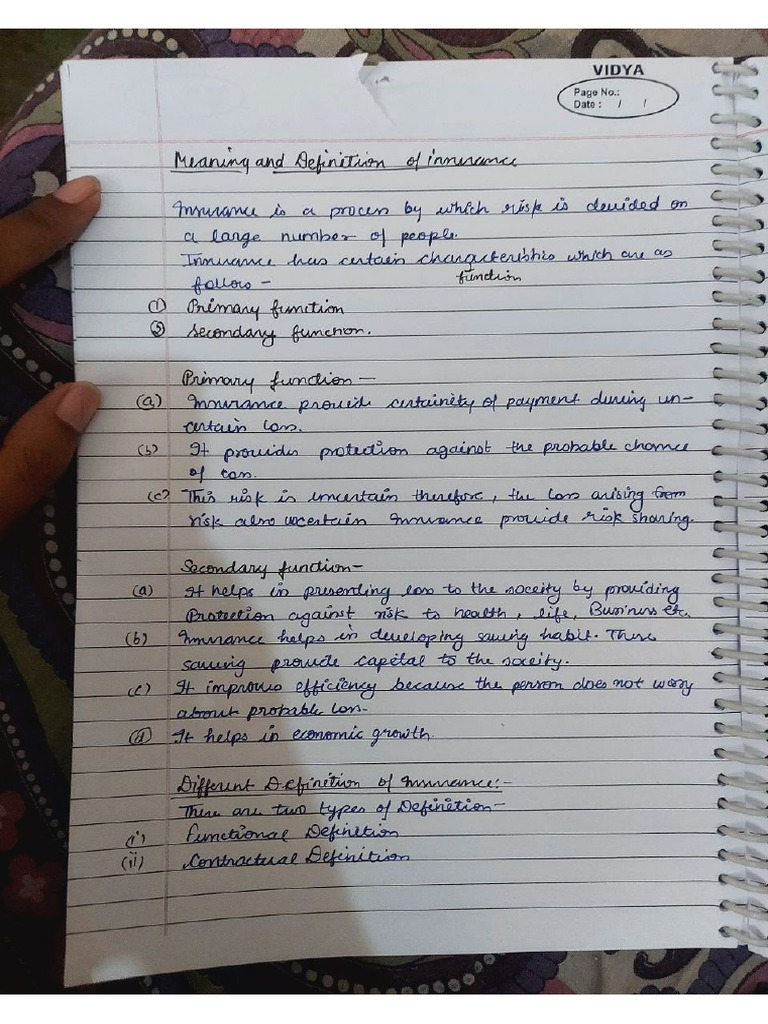 VIDYA
Page No.:
Date : / /
Meaning and Definition of insurance
Insurance is a process by which risk is devided on
a large number of people.
Insurance has certain characteristics which are as
function
follows -
(1) Primary function
(2) Secondary function.
Primary function -
(a) Insurance provide certainity of payment during un-
certain loss.
(b) It provides protection against the probable chance
of loss.
(c) This risk is uncertain therefore, the loss arising from
risk also uncertain insurance provide risk sharing.
Secondary function -
(a) It helps in presenting loss to the soceity by providing
Protection against risk to health, life, Business etc.
(b) Insurance helps in developing saving habit. These
saving provide capital to the soceity.
(c) It improves efficiency because the person does not worry
about probable loss.
(d) It helps in economic growth.
Different Definition of Insurance:-
There are two types of Definition -
(i) Functional Definition
(ii) Contractual Definition